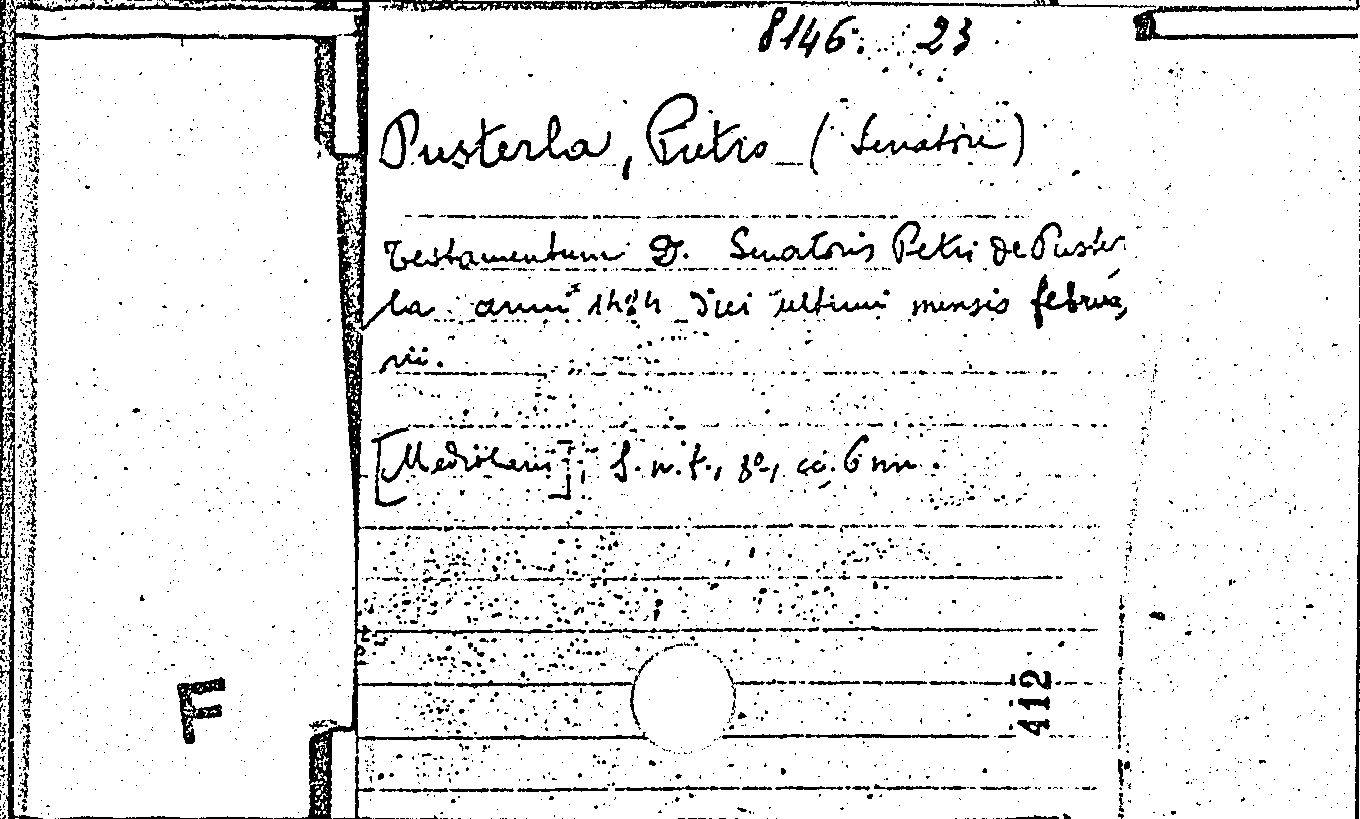 8146. 23
Pusterla, Pietro (Senatore)
Testamentum D. Senatoris Petri de Puster
la anni 1484 diei ultimi mensis februa,
rii.
[Mediolani], S. n. t., 8º, cc. 6 nn.
412
F